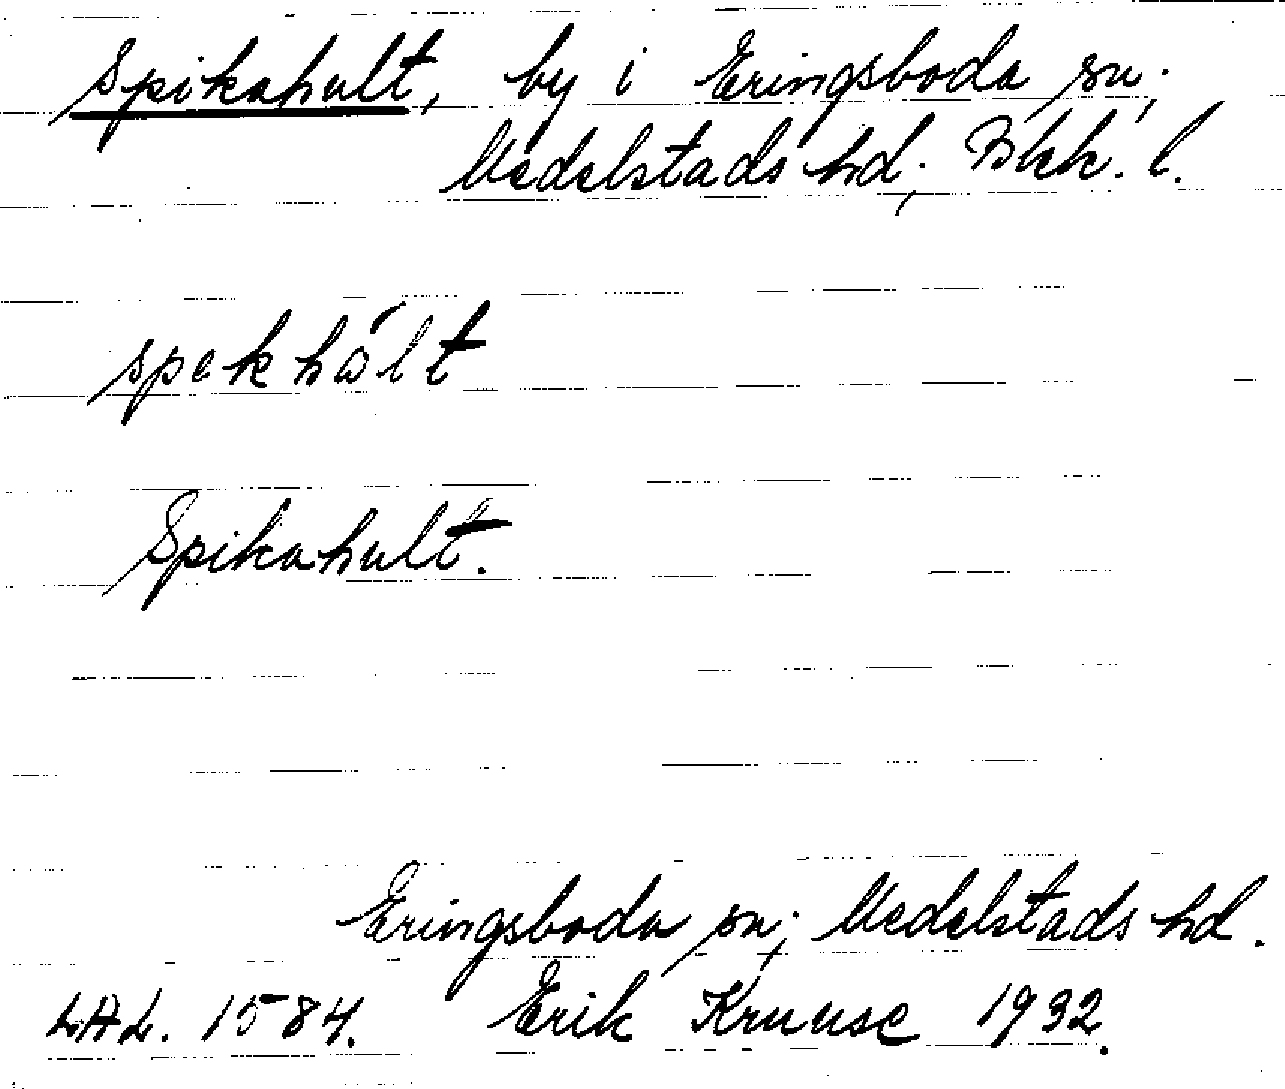 Spikahult, by i Eringsboda sn;
Medelstads hd; Blek. l.
spekhålt
Spikahult.
Eringsboda sn; Medelstads hd.
LAL. 1584. Erik Kruuse 1932.